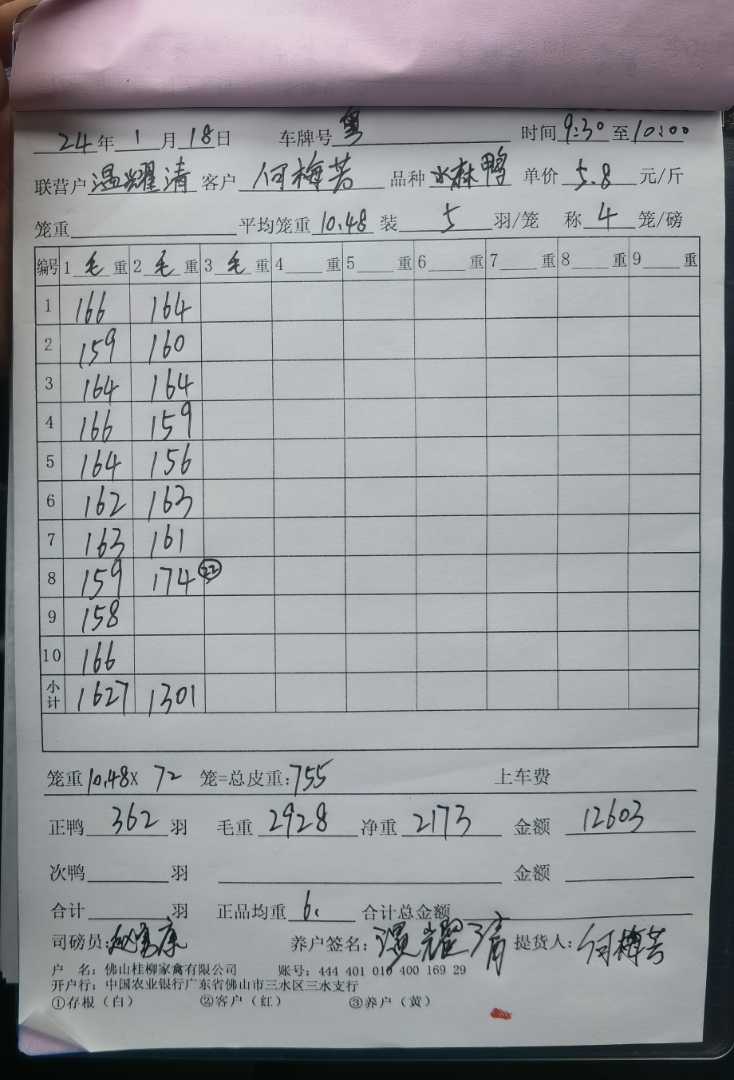 24年 1 月 18日 车牌号 粤 时间 9:30 至 10:00
联营户 温耀清 客户 何梅芳 品种 水林鸭 单价 5.8 元/斤
笼重 平均笼重 10.48 装 5 羽/笼 称 4 笼/磅
编号 1 毛 重 2 毛 重 3 毛 重 4 重 5 重 6 重 7 重 8 重 9 重
1 166 164
2 159 160
3 164 164
4 166 159
5 164 156
6 162 163
7 163 161
8 159 174 22
9 158
10 166
小计 1627 1301
笼重 10.48 x 72 笼=总皮重: 755 上车费
正鸭 362 羽 毛重 2928 净重 2173 金额 12603
次鸭 羽 金额
合计 羽 正品均重 6. 合计总金额
司磅员: 养户签名: 温耀清 提货人: 何梅芳
户 名: 佛山桂柳家禽有限公司 账号: 444 401 010 400 169 29
开户行: 中国农业银行广东省佛山市三水区三水支行
①存根（白） ②客户（红） ③养户（黄）